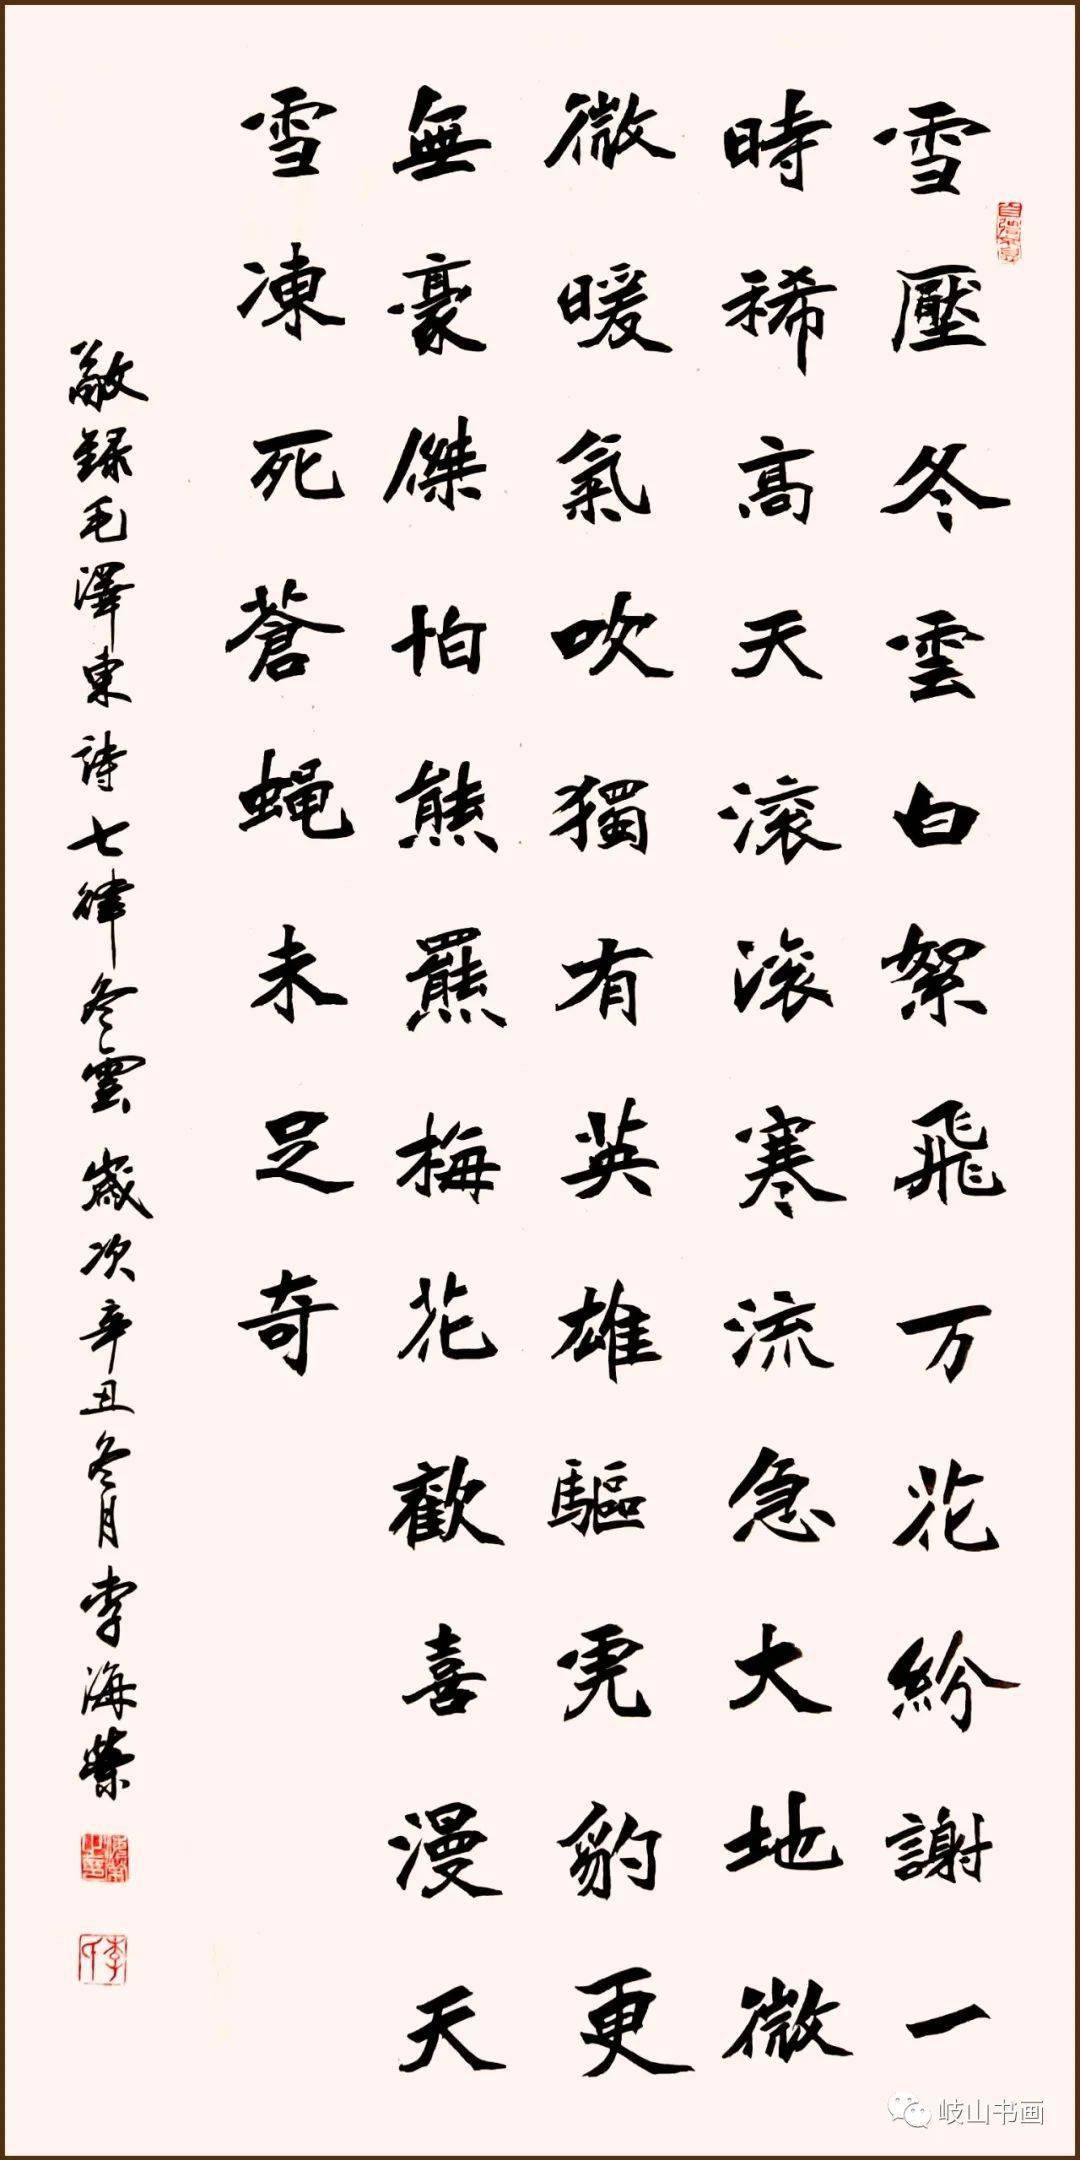 雪壓冬雲白絮飛万花紛謝一
時稀高天滚滚寒流急大地微
微暖氣吹獨有英雄驅虎豹更
無豪傑怕熊羆梅花歡喜漫天
雪凍死蒼蝇未足奇
敬録毛澤東詩七律冬雲 歲次辛丑冬月李海榮
岐山书画